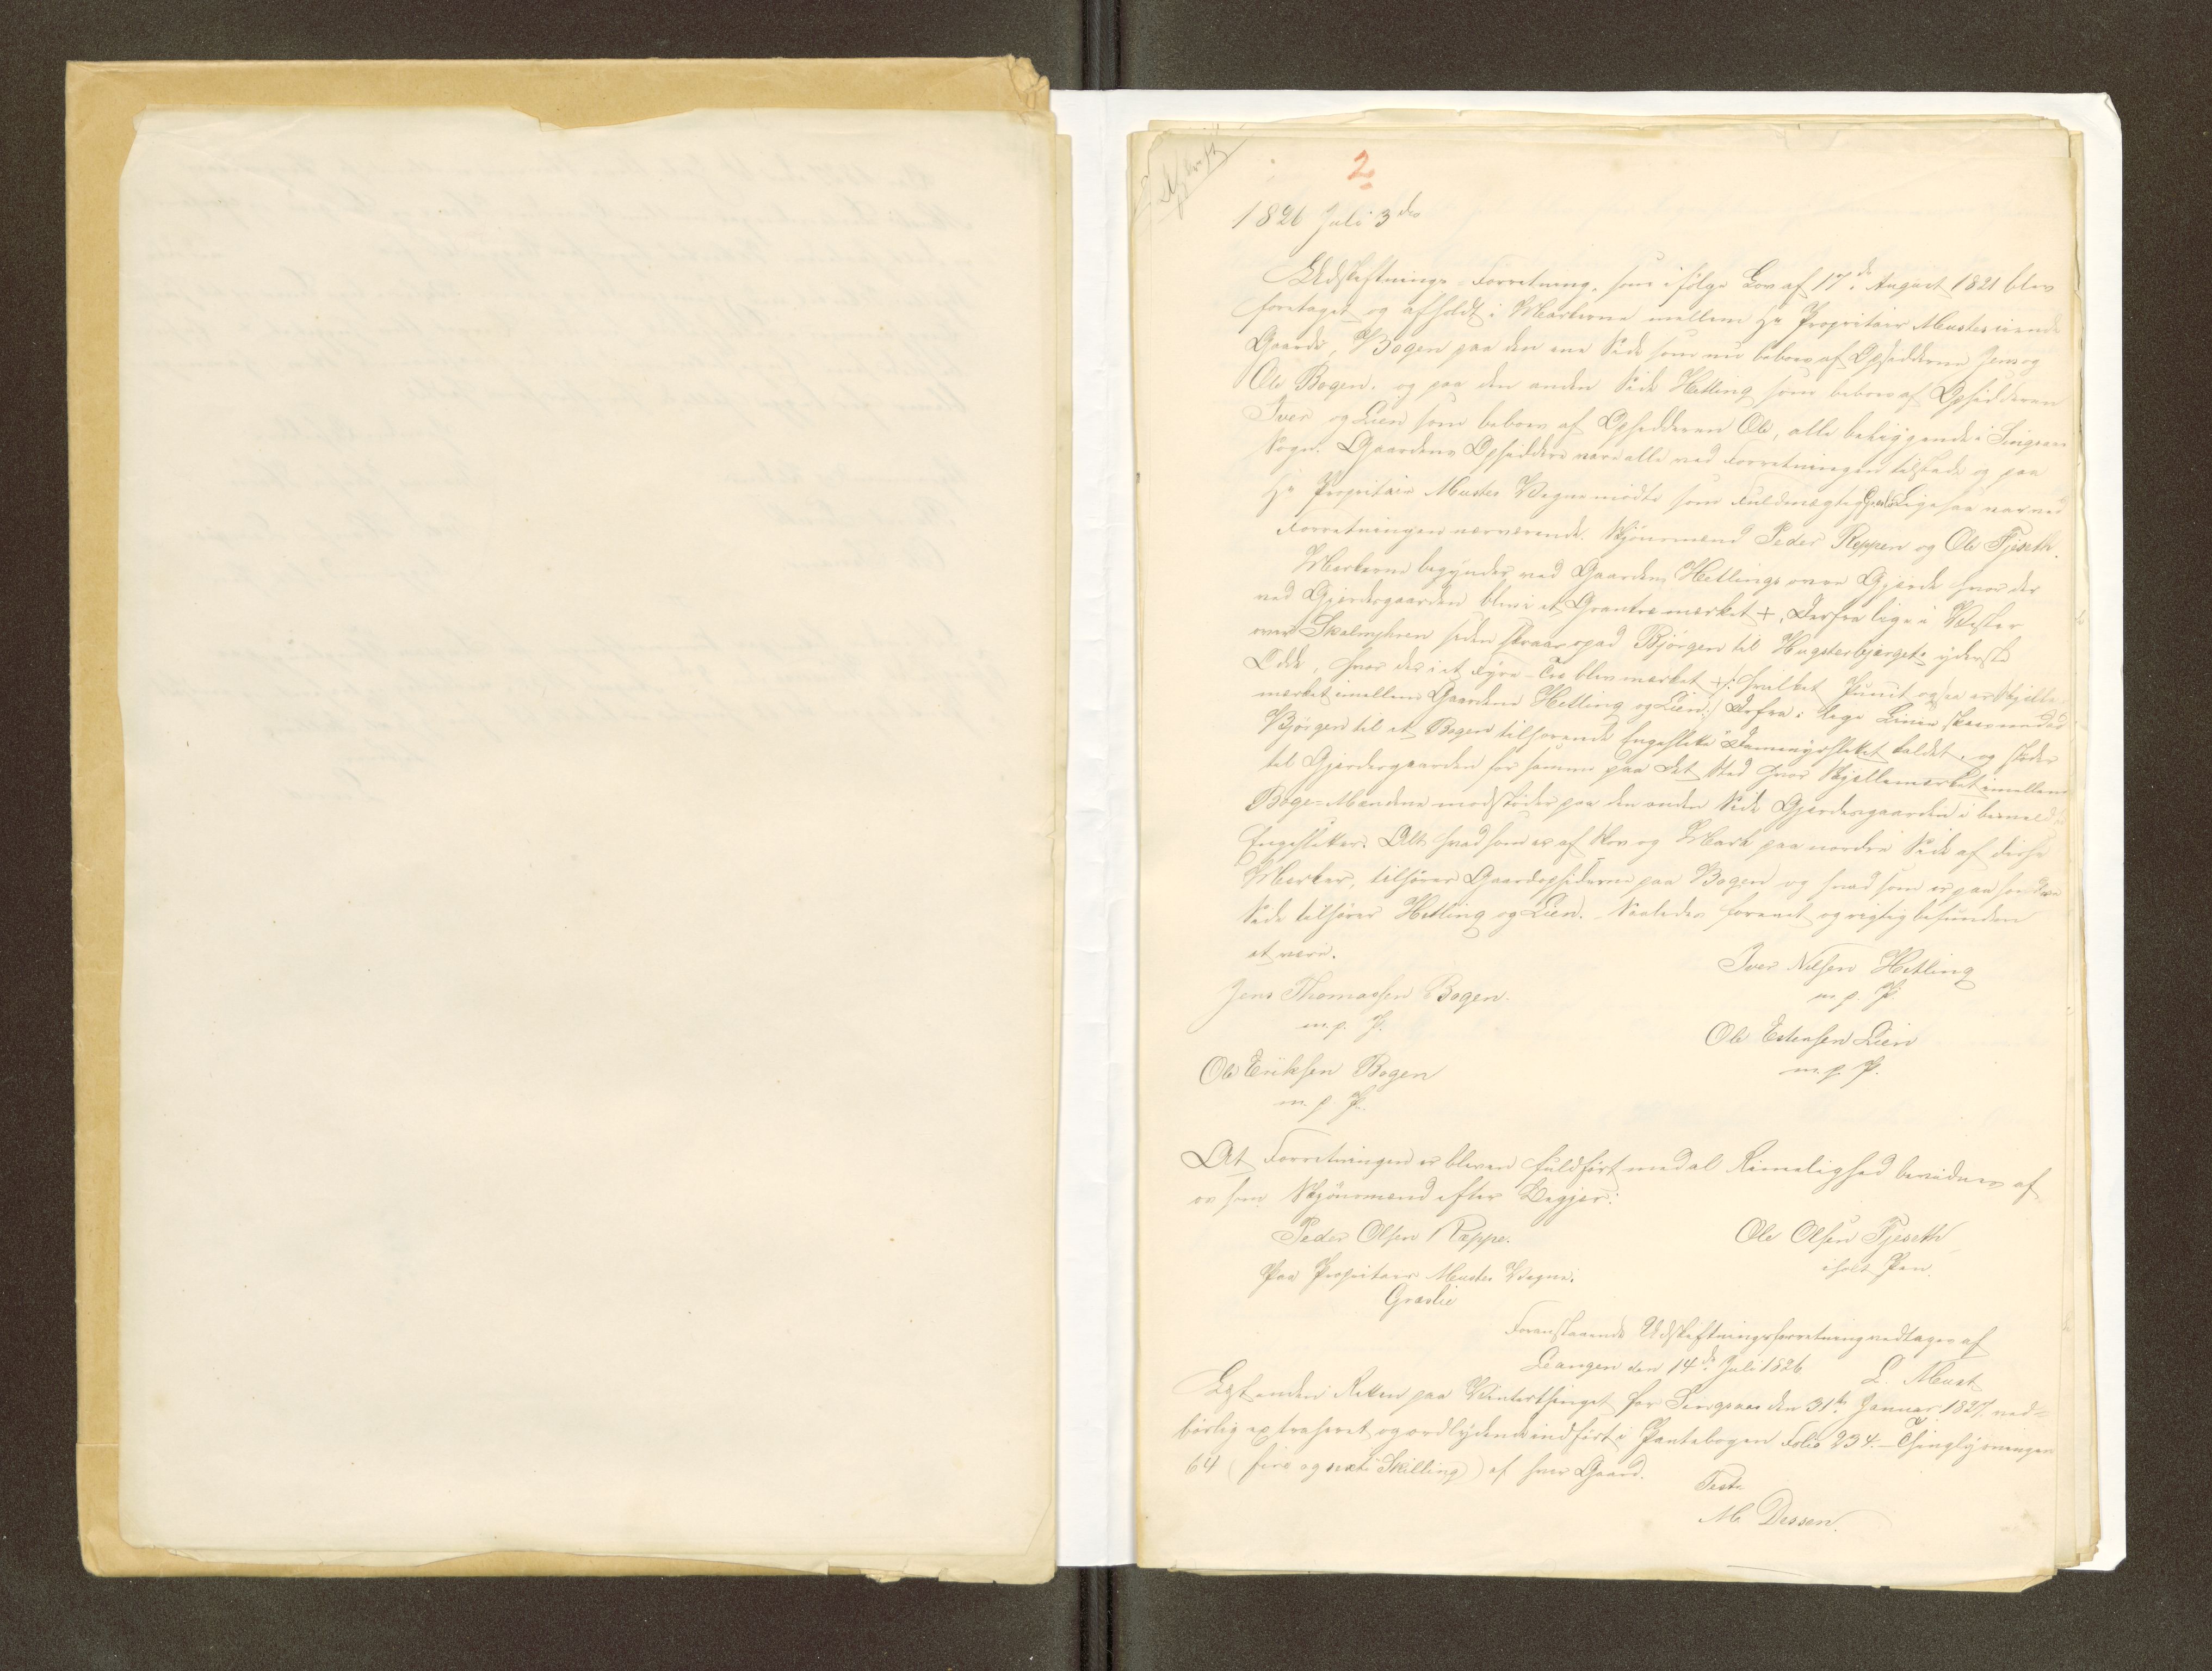 Afskrift
2
1826 Juli 3die
Udskiftnings-Forretning, som ifølge Lov af 17de August 1821 blev
foretaget og afholdt i Markerne mellem Hr Propritair Mustes eiende
Gaarde, Bogen paa den ene Side som nu beboes af Opsidderne Jens og
Ole Bogen, og paa den anden Side Hetling som beboes af Opsidderen
Iver og Lien som beboes af Opsidderen Ole, alle beliggende i Singsaas
Sogn. Gaardens Opsiddere vare alle ved Forretningen tilstede og paa
Hr Propritair Mustes Vegne mødte som Fuldmægtig Ligesaa var ved
Forretningen nærværende Skjønsmænd Peder Reppen og Ole Fjeseth.
Markerne begynder ved Gaarden Hetlings øvre Gjerde hvor der
ved Gjerdesgaarden blev i et Grantræ mærket +, Derfra lige i Vester
over Skalmyhren siden skraas opad Bjørgen til Hugsterbjergets yderste
Odde, hvor der i et Fyre-Træ blev mærket + /: hvilket Punct ogsaa er Skjelle-
mærket imellem Gaardene Hetling og Lien :/ Derfra i lige Linie skraas nedad
Bjørgen til et Bogen tilhørende Engeslette Dammyrslettet kaldet, og støder
til Gjerdesgaarden for samme paa det Sted hvor Skjellemærket imellem
Boge-Mændene modstøder paa den anden Side Gjerdesgaarden i bemeldte
Engesletter. Alt hvad som er af Skov og Mark paa nordre Side af disse
Marker, tilhører Gaardopsiderne paa Bogen og hvad som er paa søndre
Side tilhører Hetling og Lien. Saaledes forenet og rigtig befunden
at være.
Iver Nilsen Hetling
m. p. P.
Jens Thomassen Bogen.
m. p. P.
Ole Estensen Lien
m. p. P.
Ole Eriksen Bogen
m. p. P.
At Forretningen er bleven fuldført med al Rimelighed bevidnes af
os som Skjønsmænd efter Begjær:
Peder Olsen Reppe.
Ole Olsen Fjeseth
iholt Pen.
Paa Propritair Mustes Vegne.
Græslie
Foranstaaende Udskiftningsforretning vedtages af
Leangen den 14de Juli 1826
L. Must
Læst inden Retten paa Vinterthinget for Singsaas den 31te Januar 1827, ved-
børlig extraheret og ordlydende indført i Pantebogen Folio 234. - Thinglysningen
64 (fire og sexti Skilling) af hver Gaard.
Testr
M Dessen.